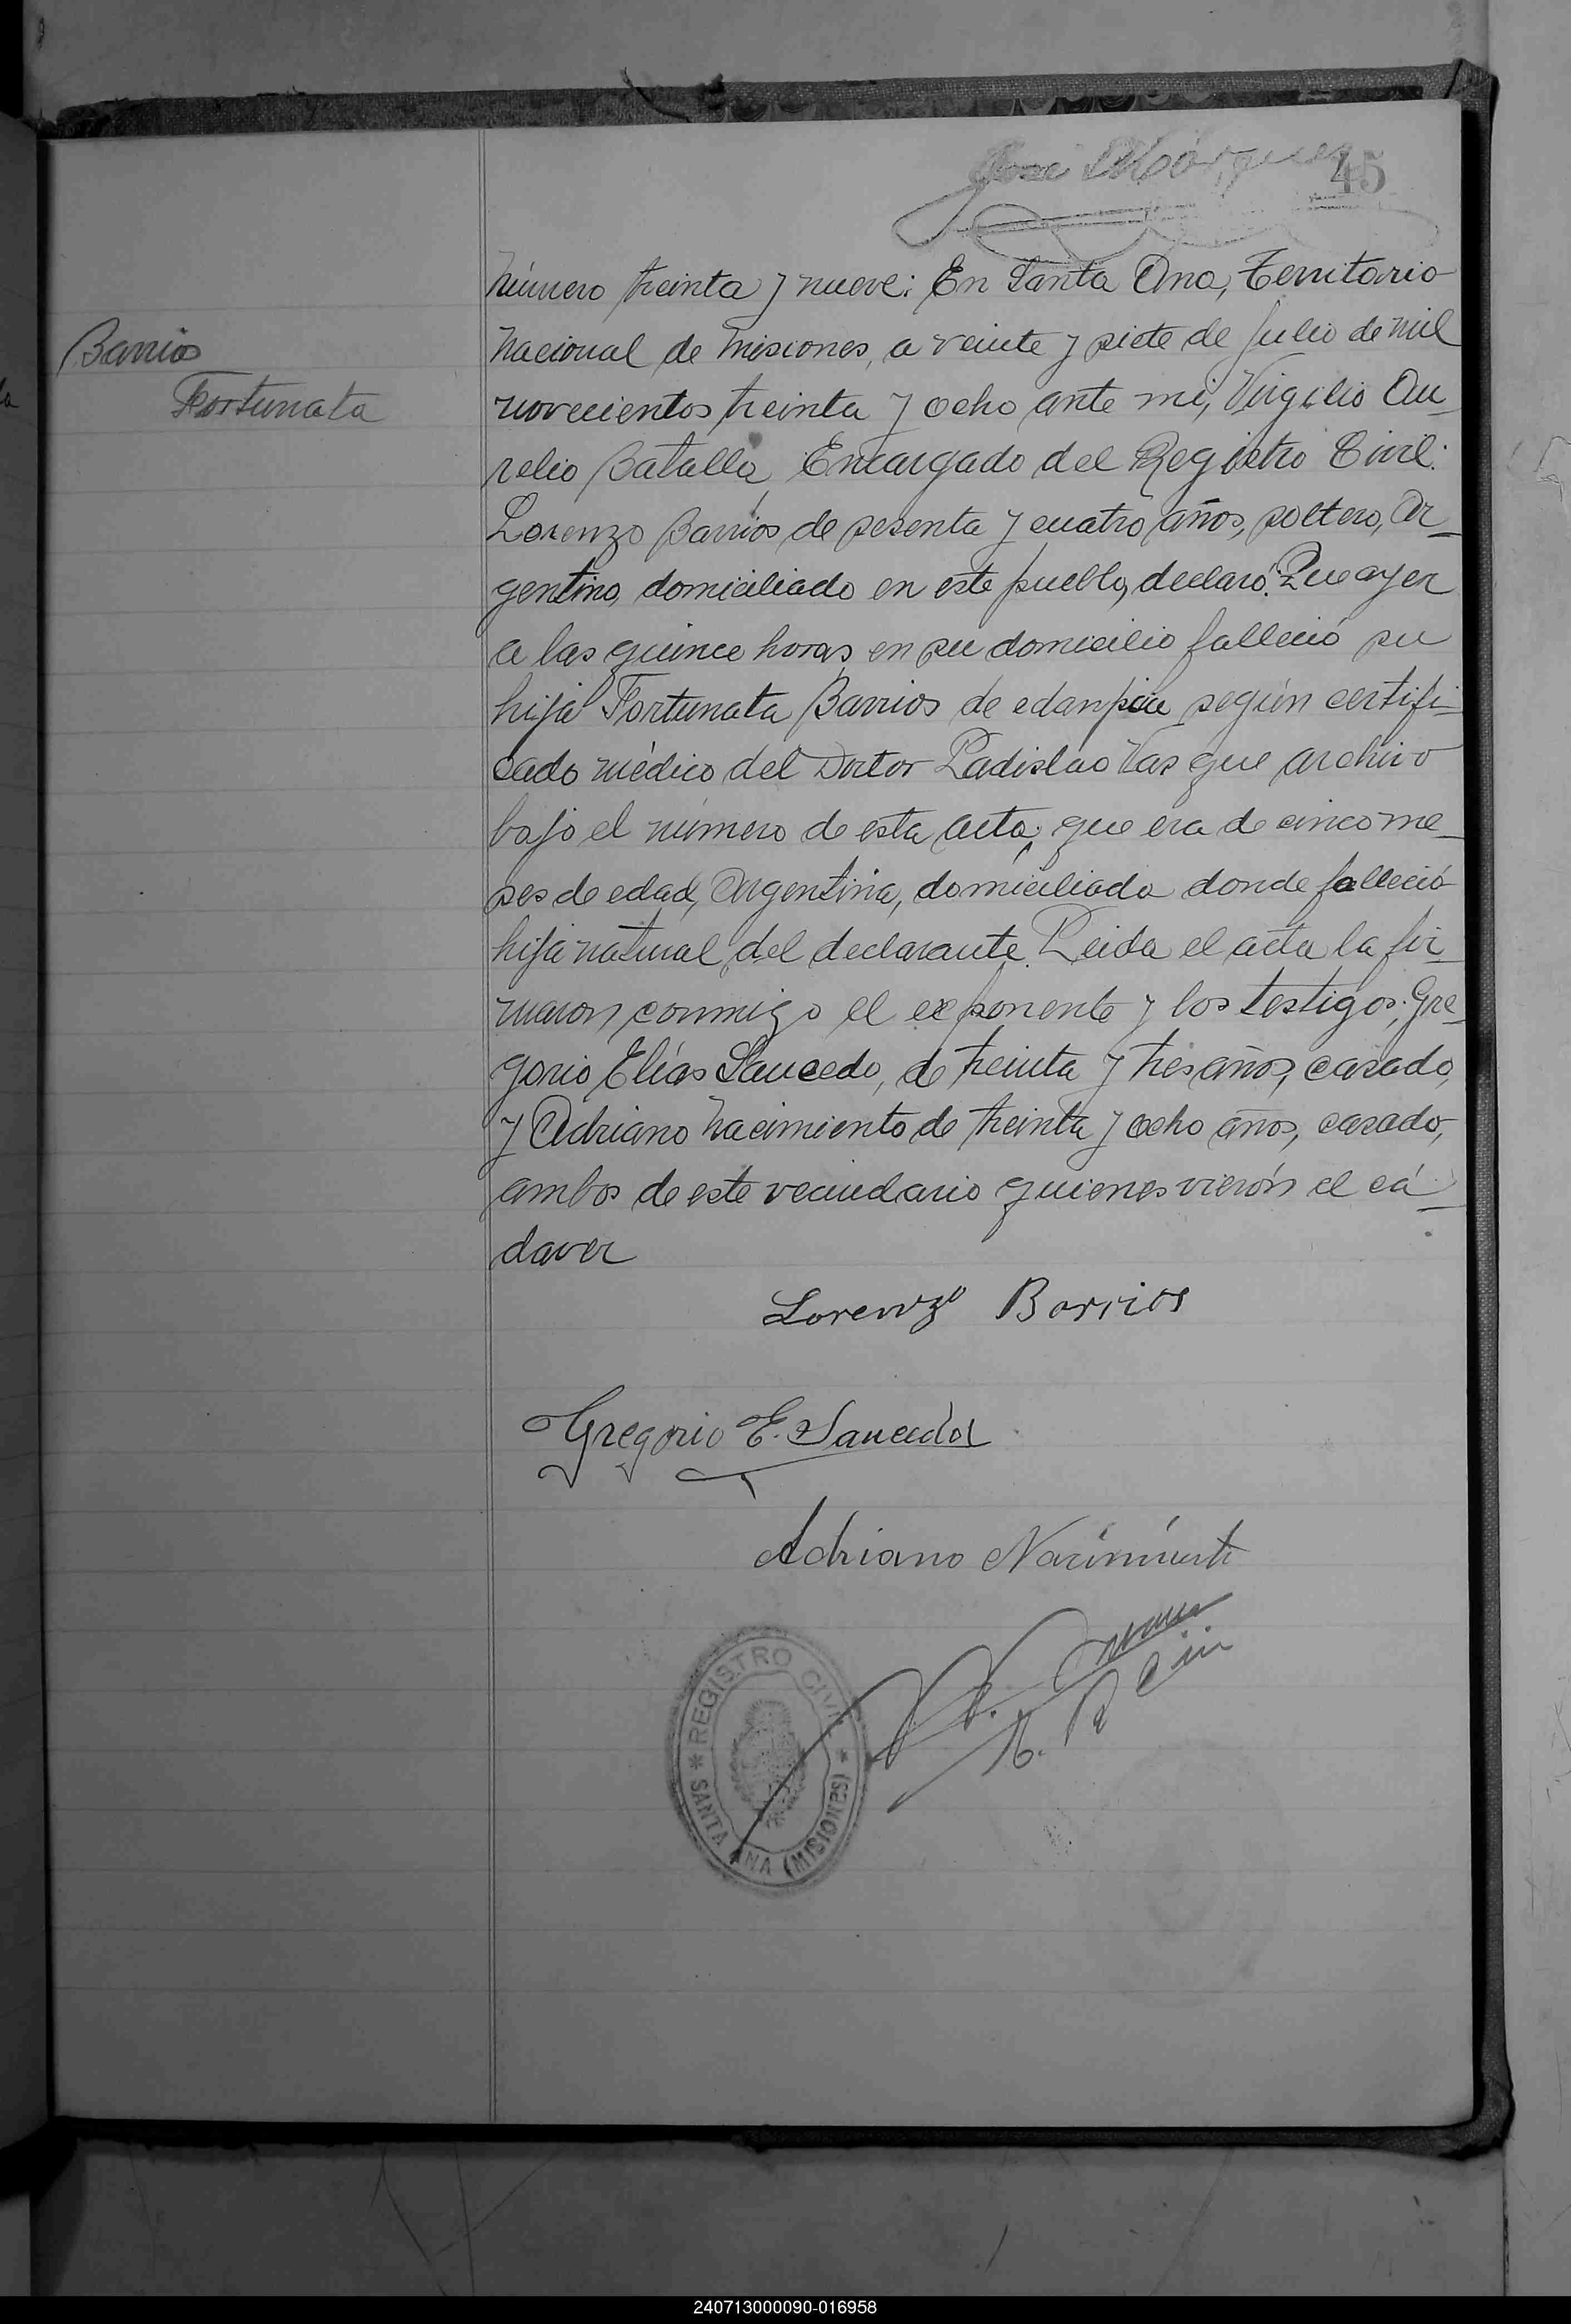 José Márquez
45
Barrios
Fortunata
Número treinta y nueve: En Santa Ana, Territorio
Nacional de Misiones, a veinte y siete de Julio de mil
novecientos treinta y ocho ante mi, Virgilio Au-
relio Batalla, Encargado del Registro Civil:
Lorenzo Barrios de sesenta y cuatro años, soltero, Ar-
gentino, domiciliado en este pueblo, declaró: Que ayer
a las quince horas en su domicilio falleció su
hija Fortunata Barrios de según certifi-
cado médico del Doctor Ladislao Vas que archivo
bajo el número de esta acta; que era de cinco me-
ses de edad, Argentina, domiciliada donde falleció
hija natural del declarante. Leida el acta la fir-
maron conmigo el exponente y los testigos; Gre-
gorio Elías Saucedo, de treinta y tres años, casado,
y Adriano Nacimiento de treinta y ocho años, casado,
ambos de este vecindario quienes vierón el cá-
daver
Lorenzo Barrios
Gregorio E. Saucedo
Adriano Nacimiento
REGISTRO CIVIL
SANTA ANA (MISIONES)
240713000090-016958